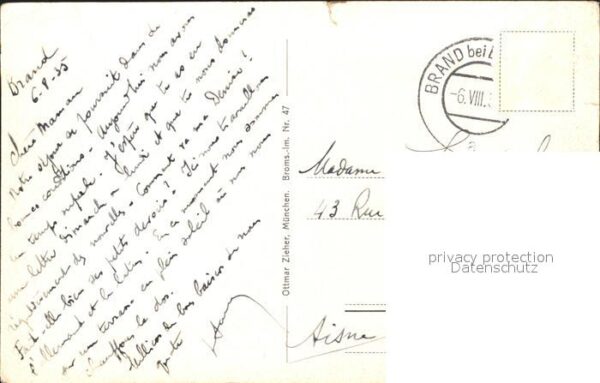 Brand
6-8-35
Chère Maman
Notre séjour se poursuit dans de
bonnes conditions - Aujourd'hui nous avons
un temps superbe. J'espère que tu as eu
une lettre dimanche a lundi et que tu nous donneras
régulièrement des nouvelles - Comment va ma Denise?
Fait-elle bien ses petits devoirs? Ici nous travaillons
l'Allemand et le latin. En ce moment nous sommes
sur un terrain en plein soleil où nous nous
chauffons le dos.
Millions de bons baisers de nous
Ottmar Zieher, München. Broms.-Im. Nr. 47
BRAND bei
-6.VIII.
Madame
43 Rue
Aisne
privacy protection
Datenschutz